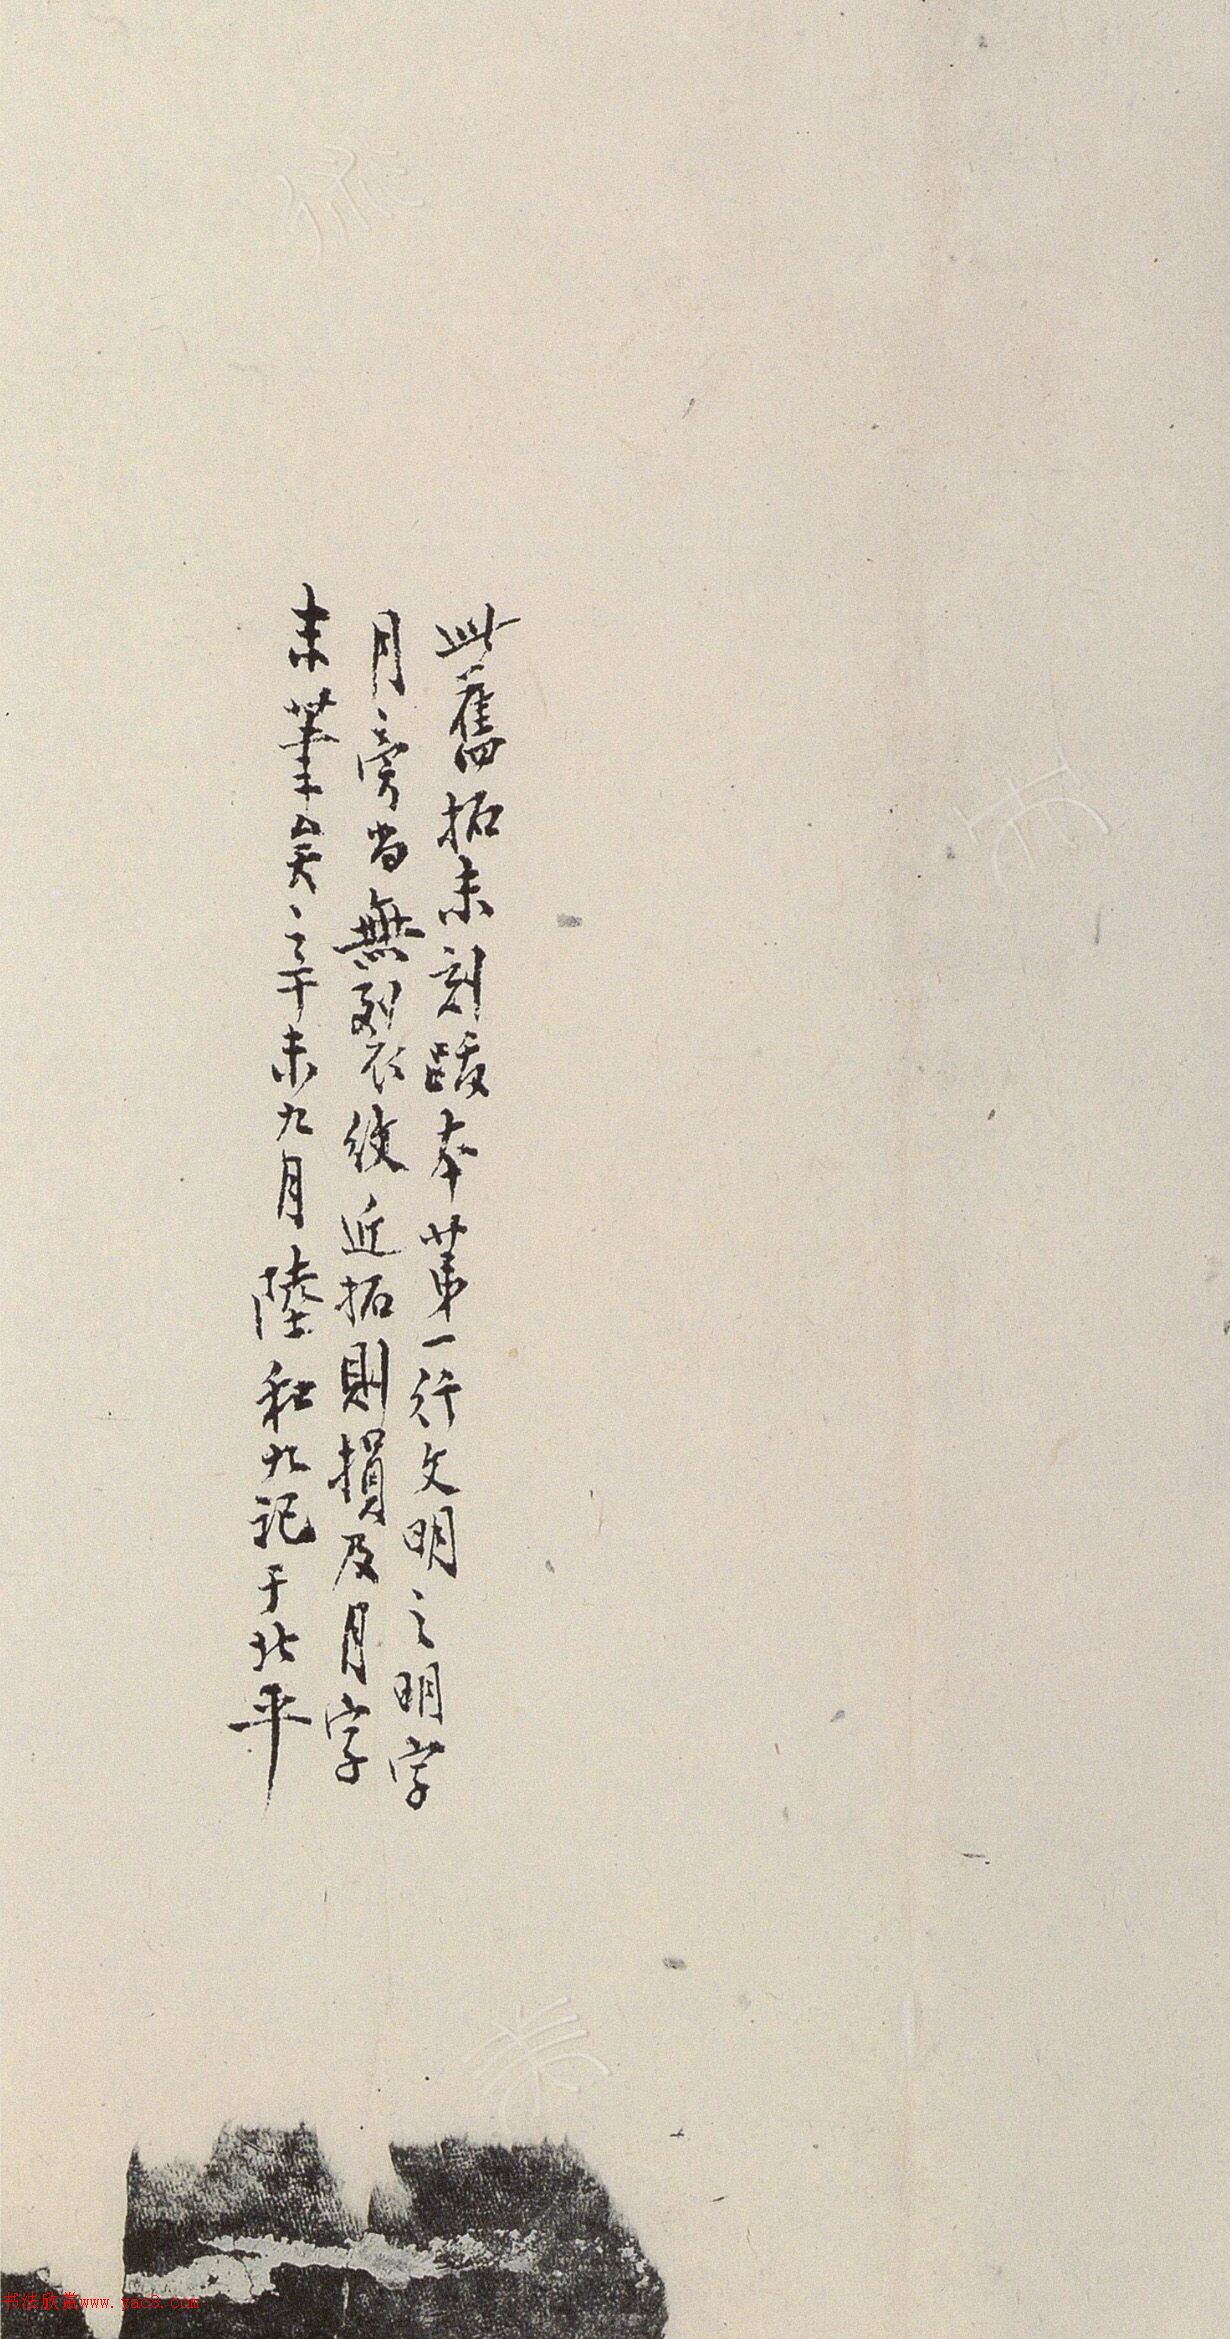 此舊拓未刻跋本第一行文明之明字
月旁尚無裂紋近拓則損及月字
末筆矣辛未九月陸和九記于北平
书法欣赏www.yac8.com